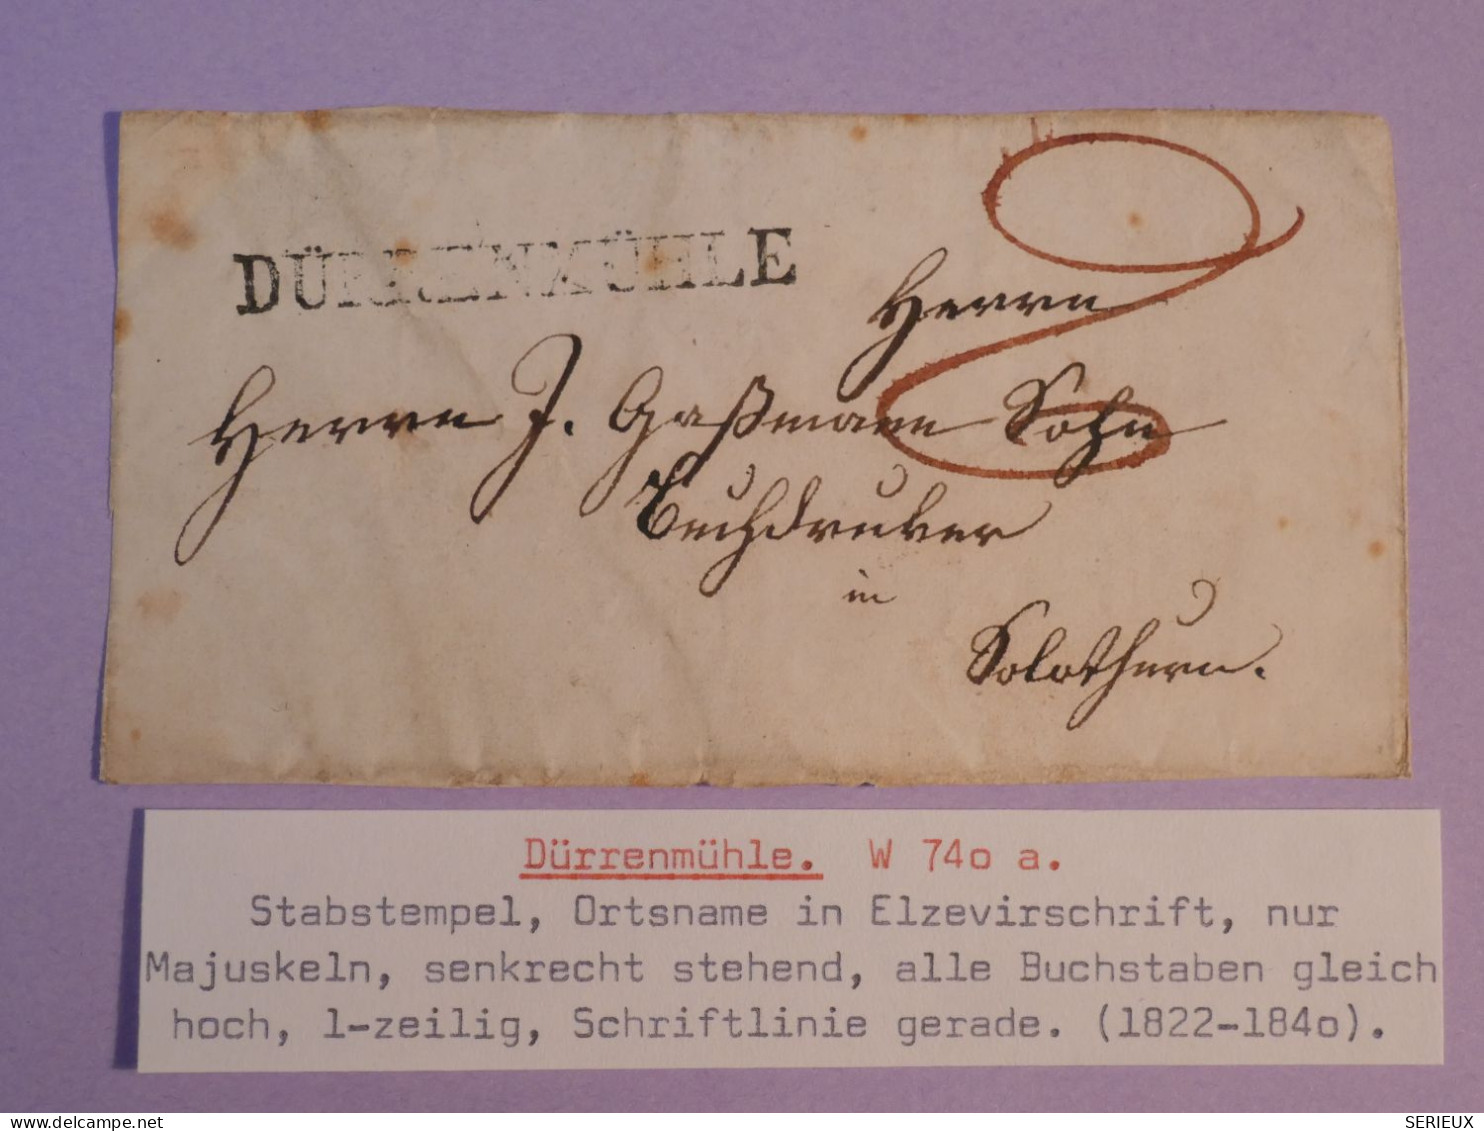 DÜRRENMÜHLE
Herrn
Herrn J. Gaßmann Sohn
Buchdruker
in
Solothurn.
Dürrenmühle. W 74o a.
Stabstempel, Ortsname in Elzevirschrift, nur
Majuskeln, senkrecht stehend, alle Buchstaben gleich
hoch, l-zeilig, Schriftlinie gerade. (1822-184o).
delcampe.net
SERIEUX